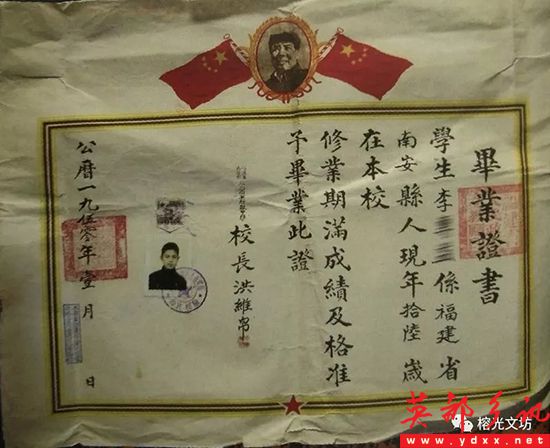 畢業證書
學生李 係福建省
南安縣人現年拾陸歲
在本校
修業期滿成績及格准
予畢業此證
校長洪維帛
公曆一九伍零年壹月 日
英都乡讯
www.ydxx.net
榕光文坊